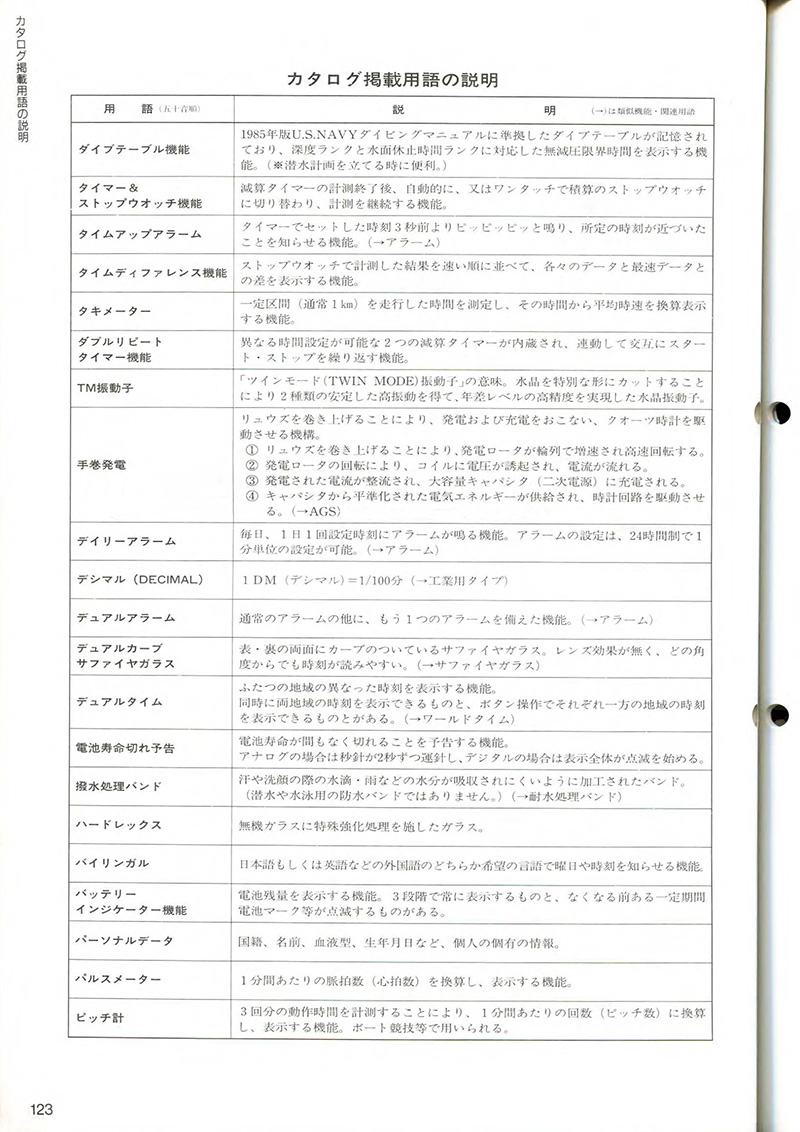 カタログ掲載用語の説明
カタログ掲載用語の説明
用　語（五十音順）
説　明　（→）は類似機能・関連用語
ダイブテーブル機能
1985年版U.S.NAVYダイビングマニュアルに準拠したダイブテーブルが記憶され
ており、深度ランクと水面休止時間ランクに対応した無減圧限界時間を表示する機
能。（※潜水計画を立てる時に便利。）
タイマー＆
ストップウオッチ機能
減算タイマーの計測終了後、自動的に、又はワンタッチで積算のストップウオッチ
に切り替わり、計測を継続する機能。
タイムアップアラーム
タイマーでセットした時刻３秒前よりピッピッピッと鳴り、所定の時刻が近づいた
ことを知らせる機能。（→アラーム）
タイムディファレンス機能
ストップウオッチで計測した結果を速い順に並べて、各々のデータと最速データと
の差を表示する機能。
タキメーター
一定区間（通常１km）を走行した時間を測定し、その時間から平均時速を換算表示
する機能。
ダブルリピート
タイマー機能
異なる時間設定が可能な２つの減算タイマーが内蔵され、連動して交互にスター
ト・ストップを繰り返す機能。
TM振動子
「ツインモード（TWIN MODE）振動子」の意味。水晶を特別な形にカットすること
により２種類の安定した高振動を得て、年差レベルの高精度を実現した水晶振動子。
手巻発電
リュウズを巻き上げることにより、発電および充電をおこない、クオーツ時計を駆
動させる機構。
① リュウズを巻き上げることにより、発電ロータが輪列で増速され高速回転する。
② 発電ロータの回転により、コイルに電圧が誘起され、電流が流れる。
③ 発電された電流が整流され、大容量キャパシタ（二次電源）に充電される。
④ キャパシタから平準化された電気エネルギーが供給され、時計回路を駆動させ
る。（→AGS）
デイリーアラーム
毎日、１日１回設定時刻にアラームが鳴る機能。アラームの設定は、24時間制で１
分単位の設定が可能。（→アラーム）
デシマル（DECIMAL）
１DM（デシマル）＝1/100分（→工業用タイプ）
デュアルアラーム
通常のアラームの他に、もう１つのアラームを備えた機能。（→アラーム）
デュアルカーブ
サファイヤガラス
表・裏の両面にカーブのついているサファイヤガラス。レンズ効果が無く、どの角
度からでも時刻が読みやすい。（→サファイヤガラス）
デュアルタイム
ふたつの地域の異なった時刻を表示する機能。
同時に両地域の時刻を表示できるものと、ボタン操作でそれぞれ一方の地域の時刻
を表示できるものとがある。（→ワールドタイム）
電池寿命切れ予告
電池寿命が間もなく切れることを予告する機能。
アナログの場合は秒針が2秒ずつ運針し、デジタルの場合は表示全体が点滅を始める。
撥水処理バンド
汗や洗顔の際の水滴・雨などの水分が吸収されにくいように加工されたバンド。
（潜水や水泳用の防水バンドではありません。）（→耐水処理バンド）
ハードレックス
無機ガラスに特殊強化処理を施したガラス。
バイリンガル
日本語もしくは英語などの外国語のどちらか希望の言語で曜日や時刻を知らせる機能。
バッテリー
インジケーター機能
電池残量を表示する機能。３段階で常に表示するものと、なくなる前ある一定期間
電池マーク等が点滅するものがある。
パーソナルデータ
国籍、名前、血液型、生年月日など、個人の個有の情報。
パルスメーター
１分間あたりの脈拍数（心拍数）を換算し、表示する機能。
ピッチ計
３回分の動作時間を計測することにより、１分間あたりの回数（ピッチ数）に換算
し、表示する機能。ボート競技等で用いられる。
123